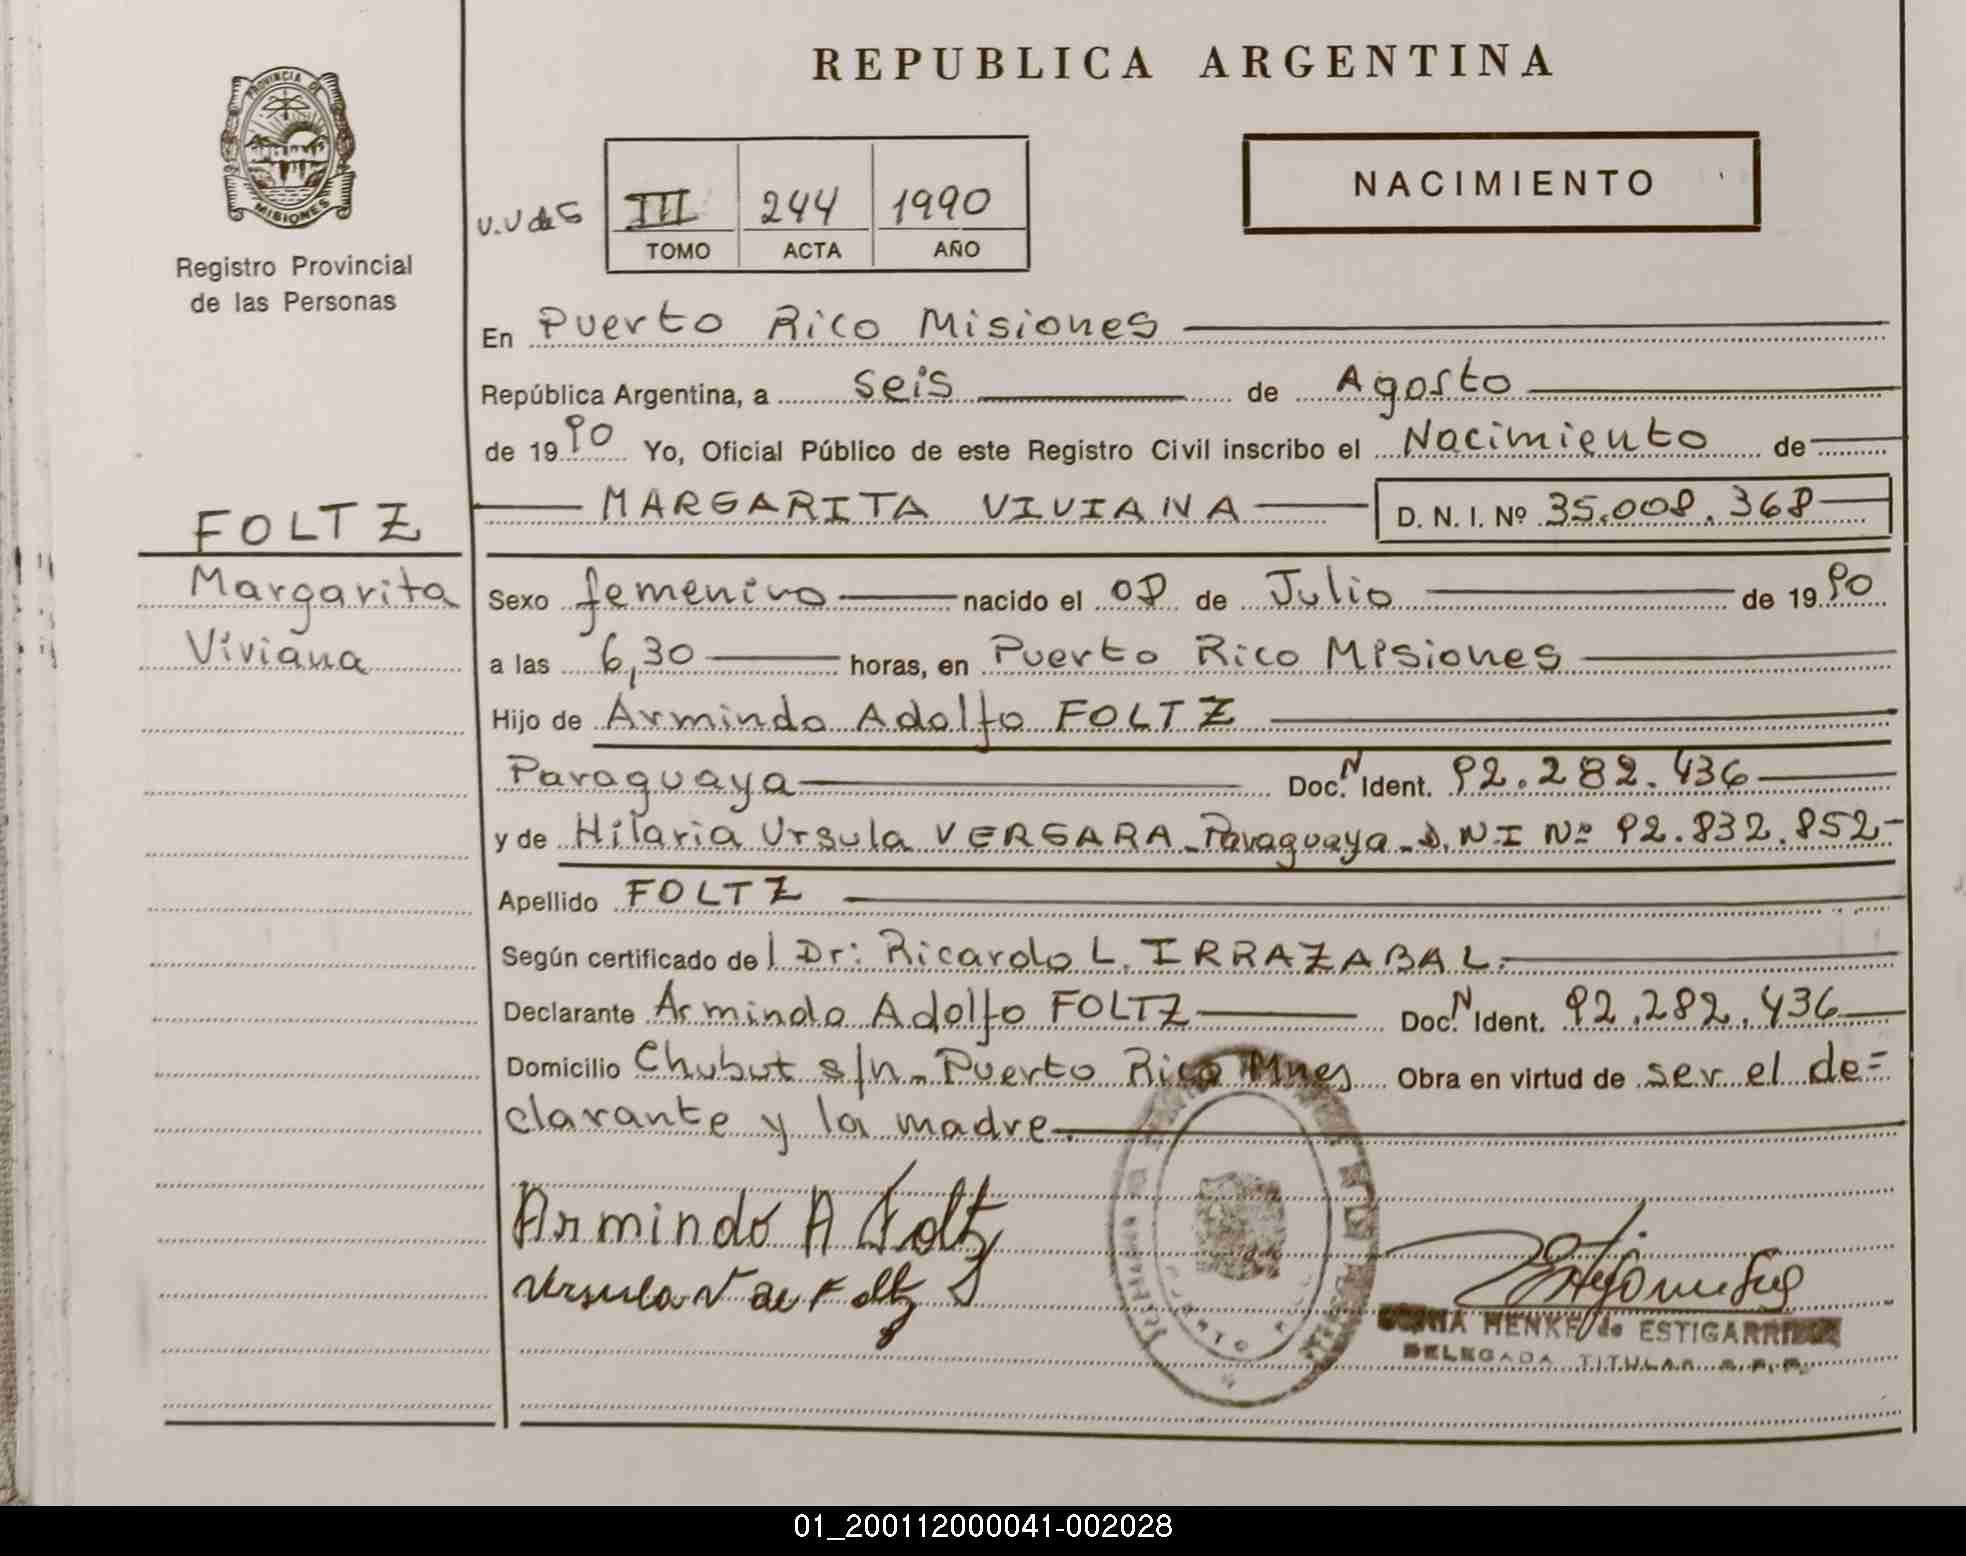 REPUBLICA ARGENTINA
PROVINCIA DE
MISIONES
Registro Provincial
de las Personas
NACIMIENTO
V.V de G
III 244 1990
TOMO ACTA AÑO
En Puerto Rico Misiones
República Argentina, a seis de Agosto
de 19 90 Yo, Oficial Público de este Registro Civil inscribo el Nacimiento de
MARGARITA VIVIANA D. N. I. Nº 35.008.368
FOLTZ
Margarita
Viviana
Sexo femenino nacido el 08 de Julio de 19 90
a las 6,30 horas, en Puerto Rico Misiones
Hijo de Armindo Adolfo FOLTZ
Paraguaya Doc. N Ident. 92.282.436
y de Hilaria Ursula VERGARA - Paraguaya - D.N.I Nº 92.832.852-
Apellido FOLTZ
Según certificado de l Dr: Ricardo L. IRRAZABAL.
Declarante Armindo Adolfo FOLTZ Doc. N Ident. 92.282.436
Domicilio Chubut s/n - Puerto Rico Mnes Obra en virtud de ser el de=
clarante y la madre.
Armindo A Foltz
Ursula V de Foltz
HENKE de ESTIGARRIBIA
DELEGADA TITULAR R.P.P.
01_200112000041-002028